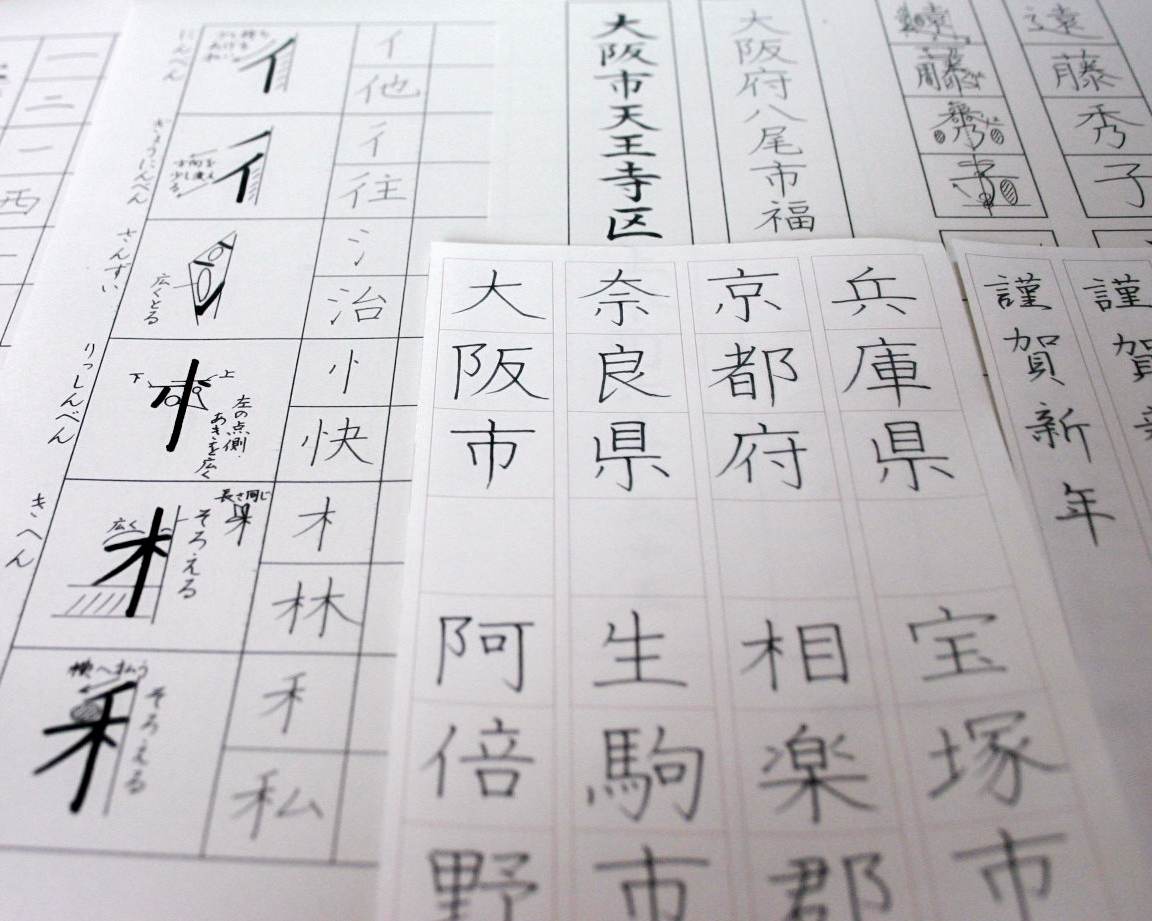 一
二
一
西
にんべん
イ
他
ぎょうにんべん
方向を
少し変える
彳
往
さんずい
広くとる
氵
治
りっしんべん
下
上
左の点側
あきを広く
忄
快
きへん
広く
そろえる
長さ同じ
木
林
横へ払う
そろえる
禾
私
大阪市天王寺区
大阪府八尾市福
遠藤秀子
兵庫県 宝塚市
京都府 相楽郡
奈良県 生駒市
大阪市 阿倍野
謹賀新年
謹賀新